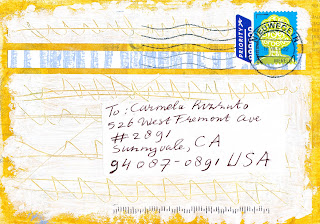 PRIORITY
To: Carmela Rizzuto
526 West Fremont Ave
#2891
Sunnyvale, CA
94087-0891 USA